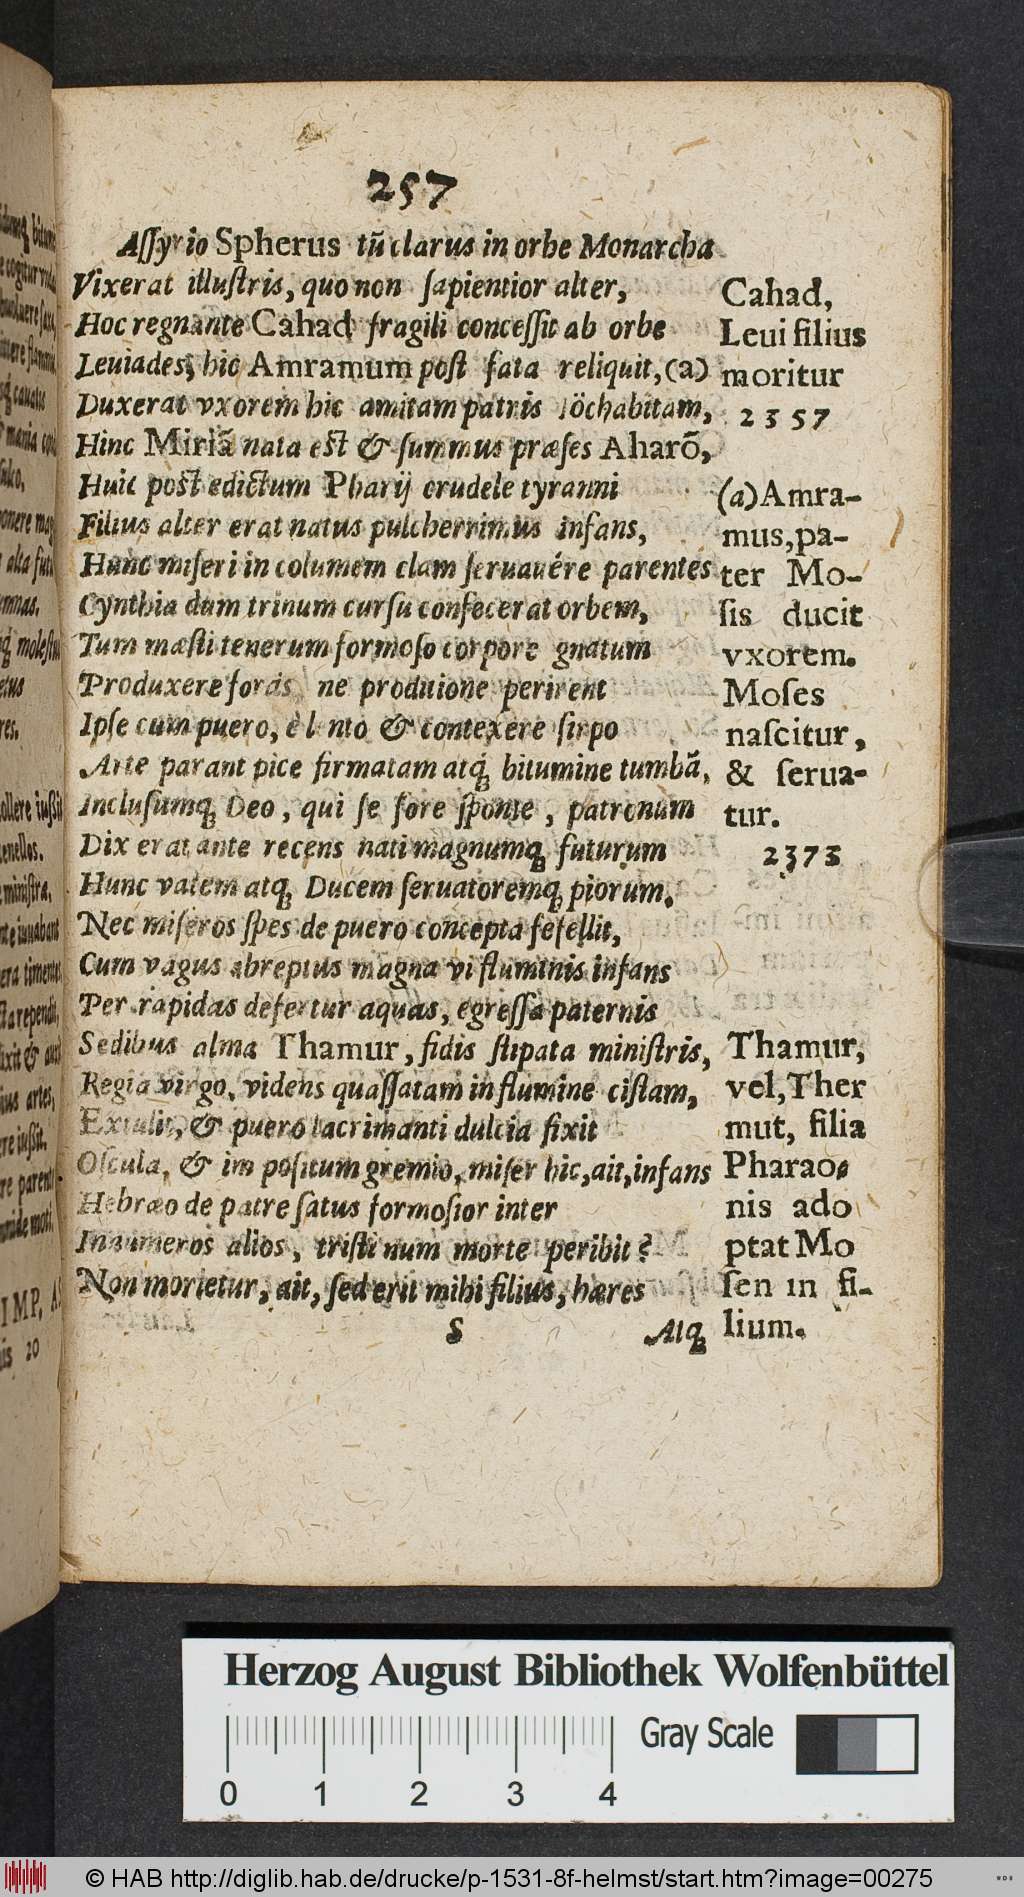 257
Aſſyrio Spherus tũ clarus in orbe Monarcha
Vixerat illuſtris, quo non ſapientior alter,
Hoc regnante Cahad fragili conceſſit ab orbe
Leuiades, hic Amramum poſt fata reliquit, (a)
Duxerat vxorem hic amitam patris Jöchabitam,
Hinc Miriã nata eſt & ſummus præſes Aharõ,
Huic poſt edictum Pharij crudele tyranni
Filius alter erat natus pulcherrimus infans,
Hunc miſeri in columem clam ſeruauére parentes
Cynthia dum trinum curſu confecerat orbem,
Tum mæſti tenerum formoſo corpore gnatum
Produxere foras, ne proditione perirent
Ipſe cum puero, è lento & contexére ſirpo
Arte parant pice firmatam atq́ bitumine tumbã,
Incluſumq Deo, qui ſe fore ſponte, patronum
Dixerat ante recens nati magnumq futurum
Hunc vatem atq Ducem ſeruatoremq piorum.
Nec miſeros ſpes de puero concepta fefellit,
Cum vagus abreptus magna vi fluminis infans
Per rapidas defertur aquas, egreſſa paternis
Sedibus alma Thamur, fidis ſtipata miniſtris,
Regia virgo, videns quaſſatam in flumine ciſtam,
Extulit, & puero lacrimanti dulcia fixit
Oſcula, & im poſitum gremio, miſer hic, ait, infans
Hebræo de patre ſatus formoſior inter
Innumeros alios, triſti num morte peribit?
Non morietur, ait, ſed erit mihi filius, hæres
S Atq
Cahad,
Leui filius
moritur
2357
(a) Amra-
mus, pa-
ter Mo-
ſis ducit
vxorem.
Moſes
naſcitur,
& ſerua-
tur.
2373
Thamur,
vel, Ther
mut, filia
Pharao-
nis ado
ptat Mo
ſen in fi-
lium.
Herzog August Bibliothek Wolfenbüttel
Gray Scale
0 1 2 3 4
© HAB http://diglib.hab.de/drucke/p-1531-8f-helmst/start.htm?image=00275